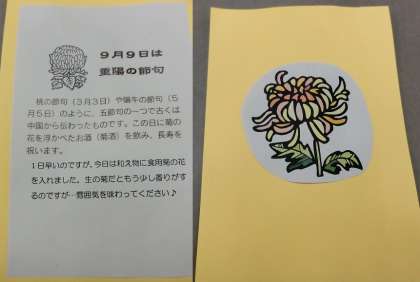 9月9日は
重陽の節句
桃の節句(3月3日)や端午の節句(5
月5日)のように、五節句の一つで古くは
中国から伝わったものです。この日に菊の
花を浮かべたお酒(菊酒)を飲み、長寿を
祝います。
1日早いのですが、今日は和え物に食用菊の花
を入れました。生の菊だともう少し香りがす
るのですが…雰囲気を味わってください♪